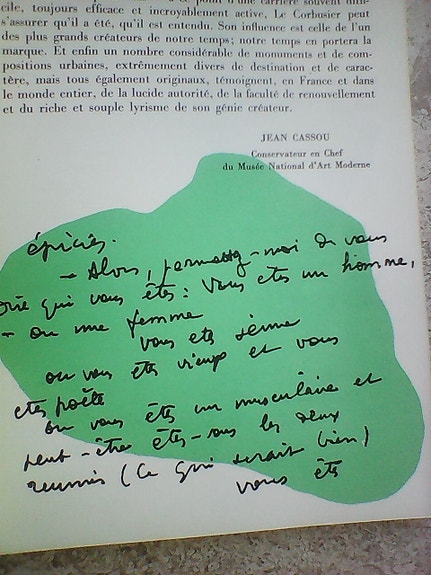 cile, toujours efficace et incroyablement active, Le Corbusier peut
s'assurer qu'il a été, qu'il est entendu. Son influence est celle de l'un
des plus grands créateurs de notre temps; notre temps en portera la
marque. Et enfin un nombre considérable de monuments et de com-
positions urbaines, extrêmement divers de destination et de carac-
tère, mais tous également originaux, témoignent, en France et dans
le monde entier, de la lucide autorité, de la faculté de renouvellement
et du riche et souple lyrisme de son génie créateur.
JEAN CASSOU
Conservateur en Chef
du Musée National d'Art Moderne
épiciés.
– Alors, permettez-moi de vous
qui vous êtes: Vous etes un homme,
– ou une femme
vous ets
ou vous êts vieux et vous
etes poète
ou vous êts un musculaire et
peut-être êtes-vous les deux
reunis (ce qui serait bien)
vous êts